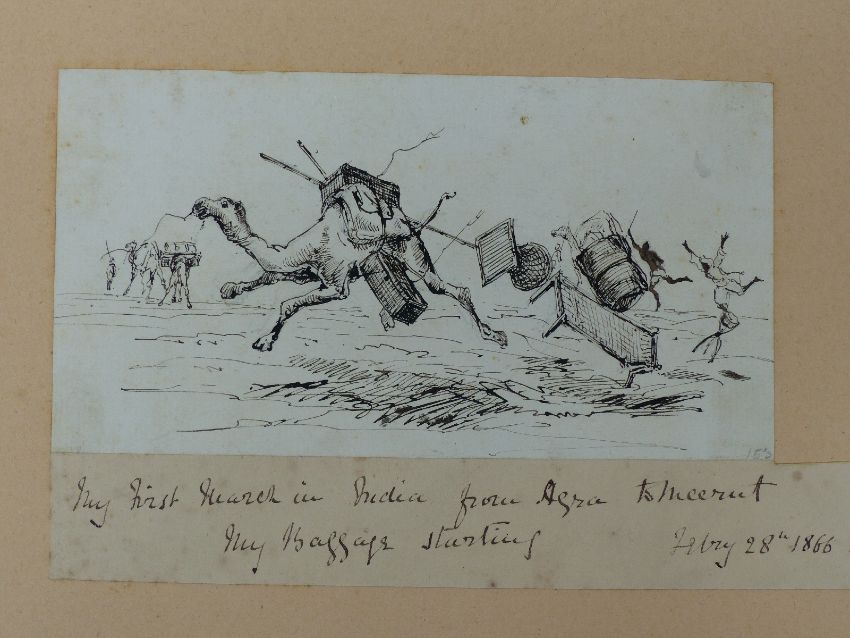 153
My First March in India from Agra to Meerut
My Baggage starting Febry 28th 1866